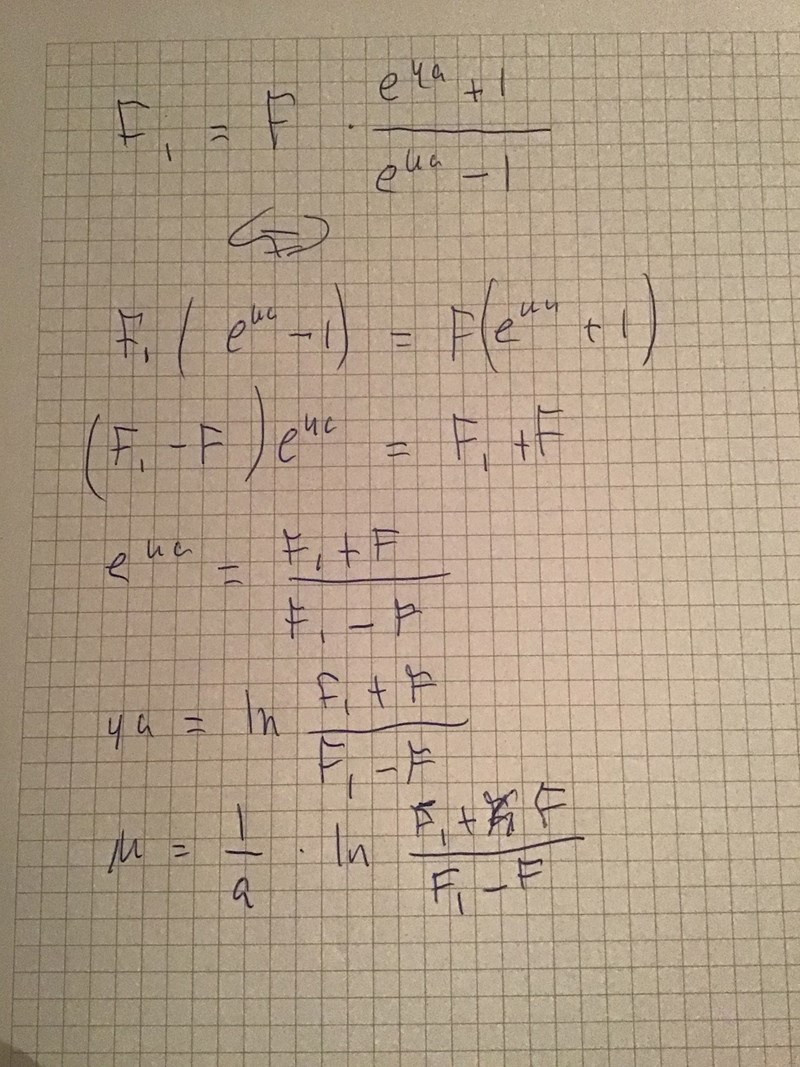 F₁ = F · (e^{μa} + 1)/(e^{μa} − 1)
F₁ (e^{μa} − 1) = F(e^{μa} + 1)
(F₁ − F) e^{μa} = F₁ + F
e^{μa} = (F₁ + F)/(F₁ − F)
μa = ln (F₁ + F)/(F₁ − F)
μ = 1/a · ln (F₁ + F)/(F₁ − F)